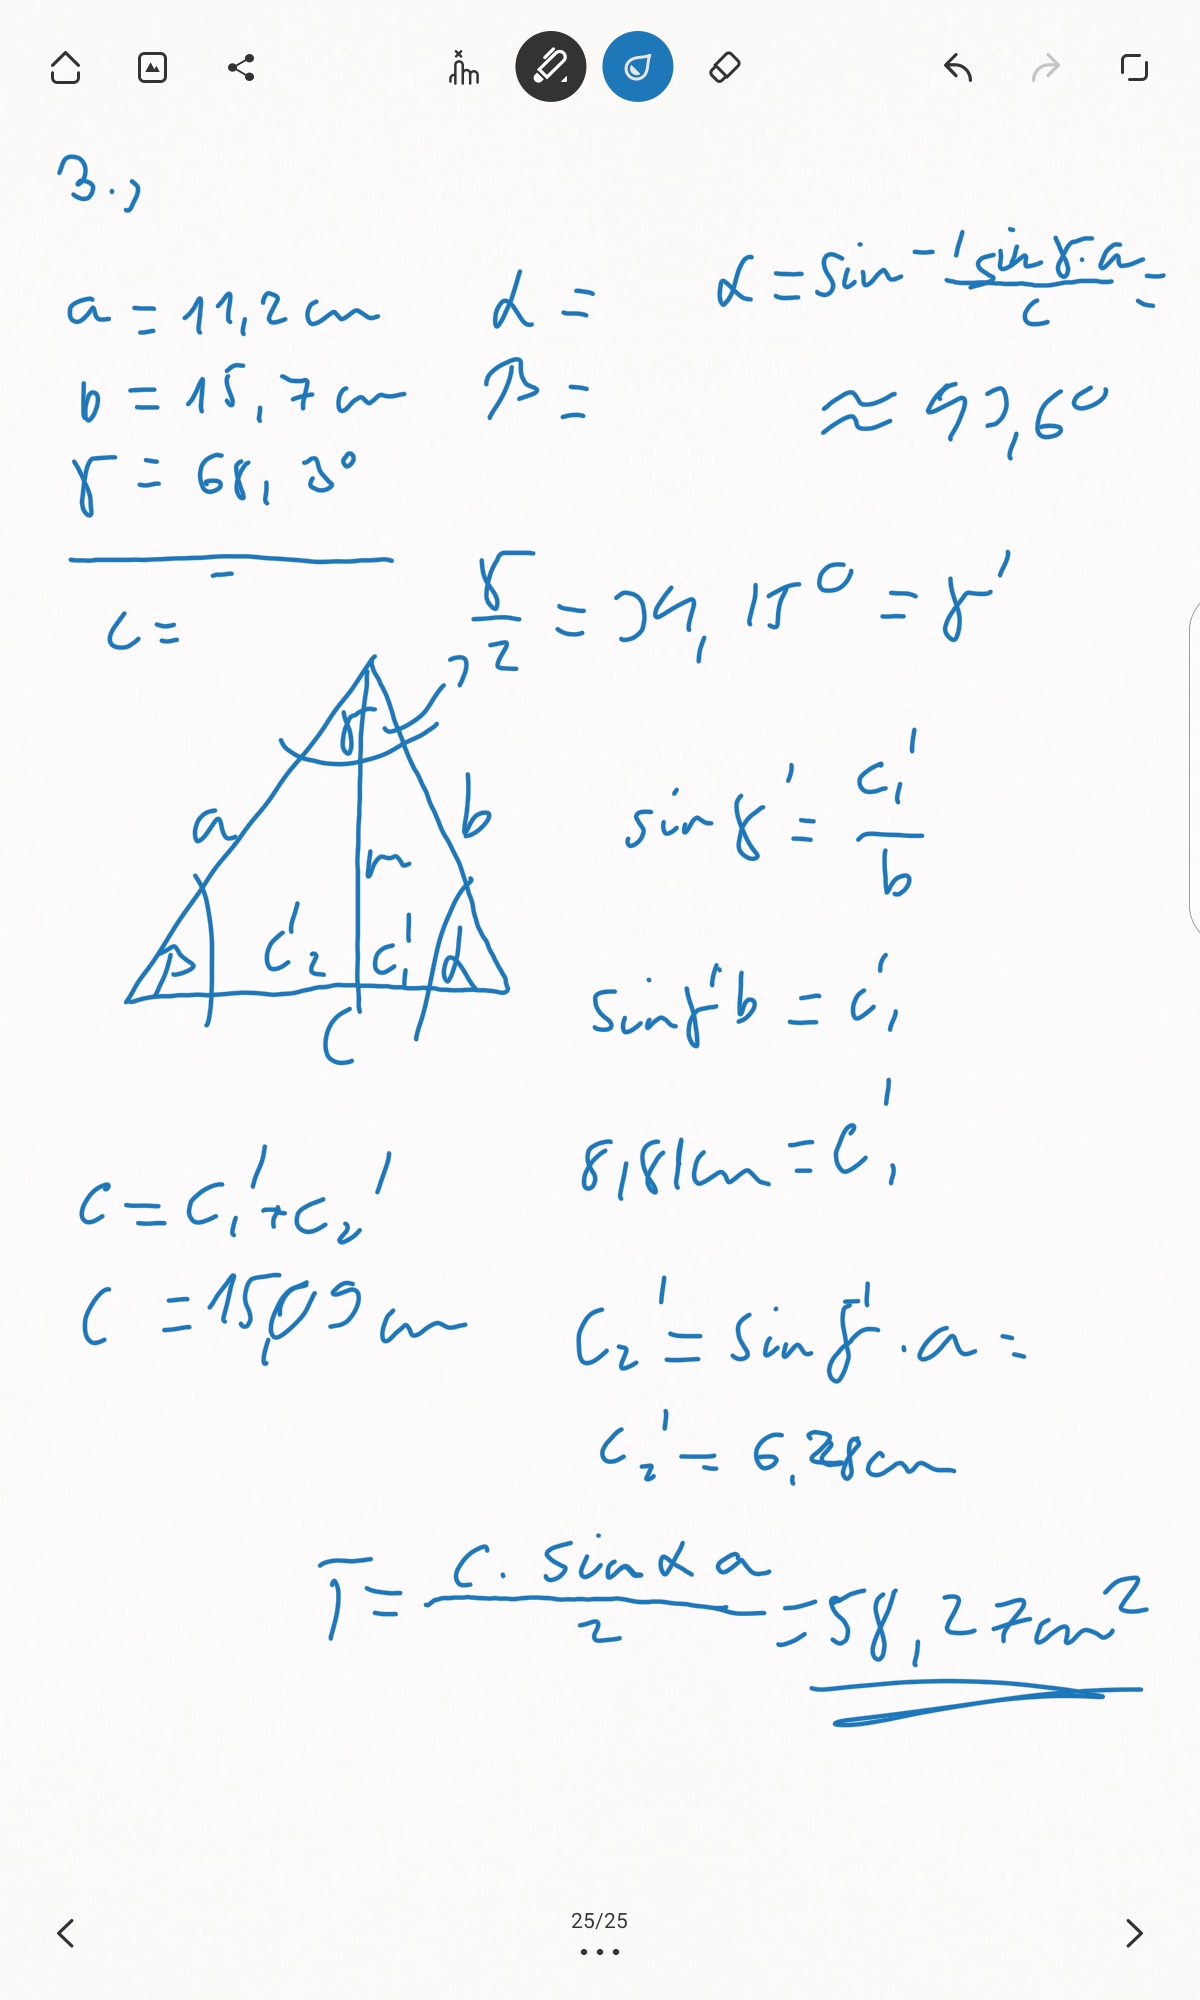 3.,
a = 11,2 cm
b = 15,7 cm
γ = 68,3°
c =
α =
β =
α = sin⁻¹ (sin γ · a)/c =
≈ 43,6°
γ/2 = 34,15° = γ'
γ
a
b
m
β
c₂'
c₁'
α
c
sin γ' = c₁'/b
sin γ' b = c₁'
8,81 cm = c₁'
c = c₁' + c₂'
c = 15,09 cm
c₂' = sin γ' · a =
c₂' = 6,28 cm
T = (c · sin α a)/2 = 58,27 cm²
25/25